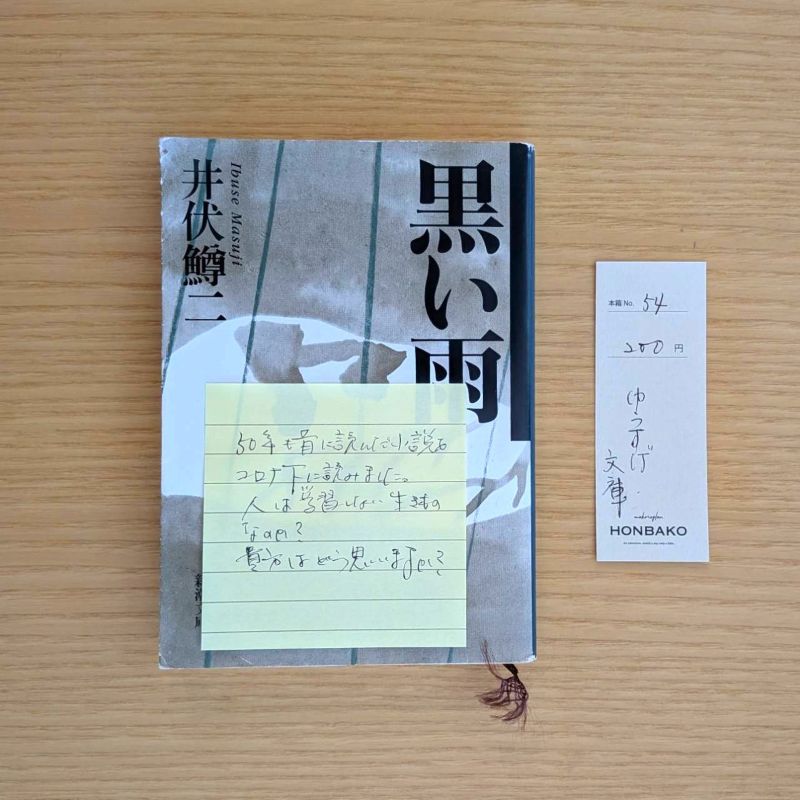 黒い雨
井伏鱒二
Ibuse Masuji
新潮文庫
50年も前に読んだ小説を
コロナ下に読みました。
人は学習しない生き物
なのか?
貴方はどう思いますか?
本箱 No. 54
200 円
ゆうすげ
文庫
HONBAKO